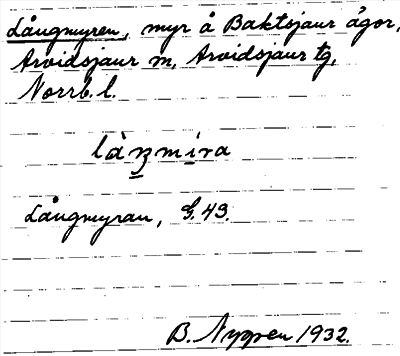 Långmyren, myr å Baktsjaur ägor,
Arvidsjaur sn, Arvidsjaur tg,
Norrb. l.
Långmyran, G.43.
B. Nyppen 1932.